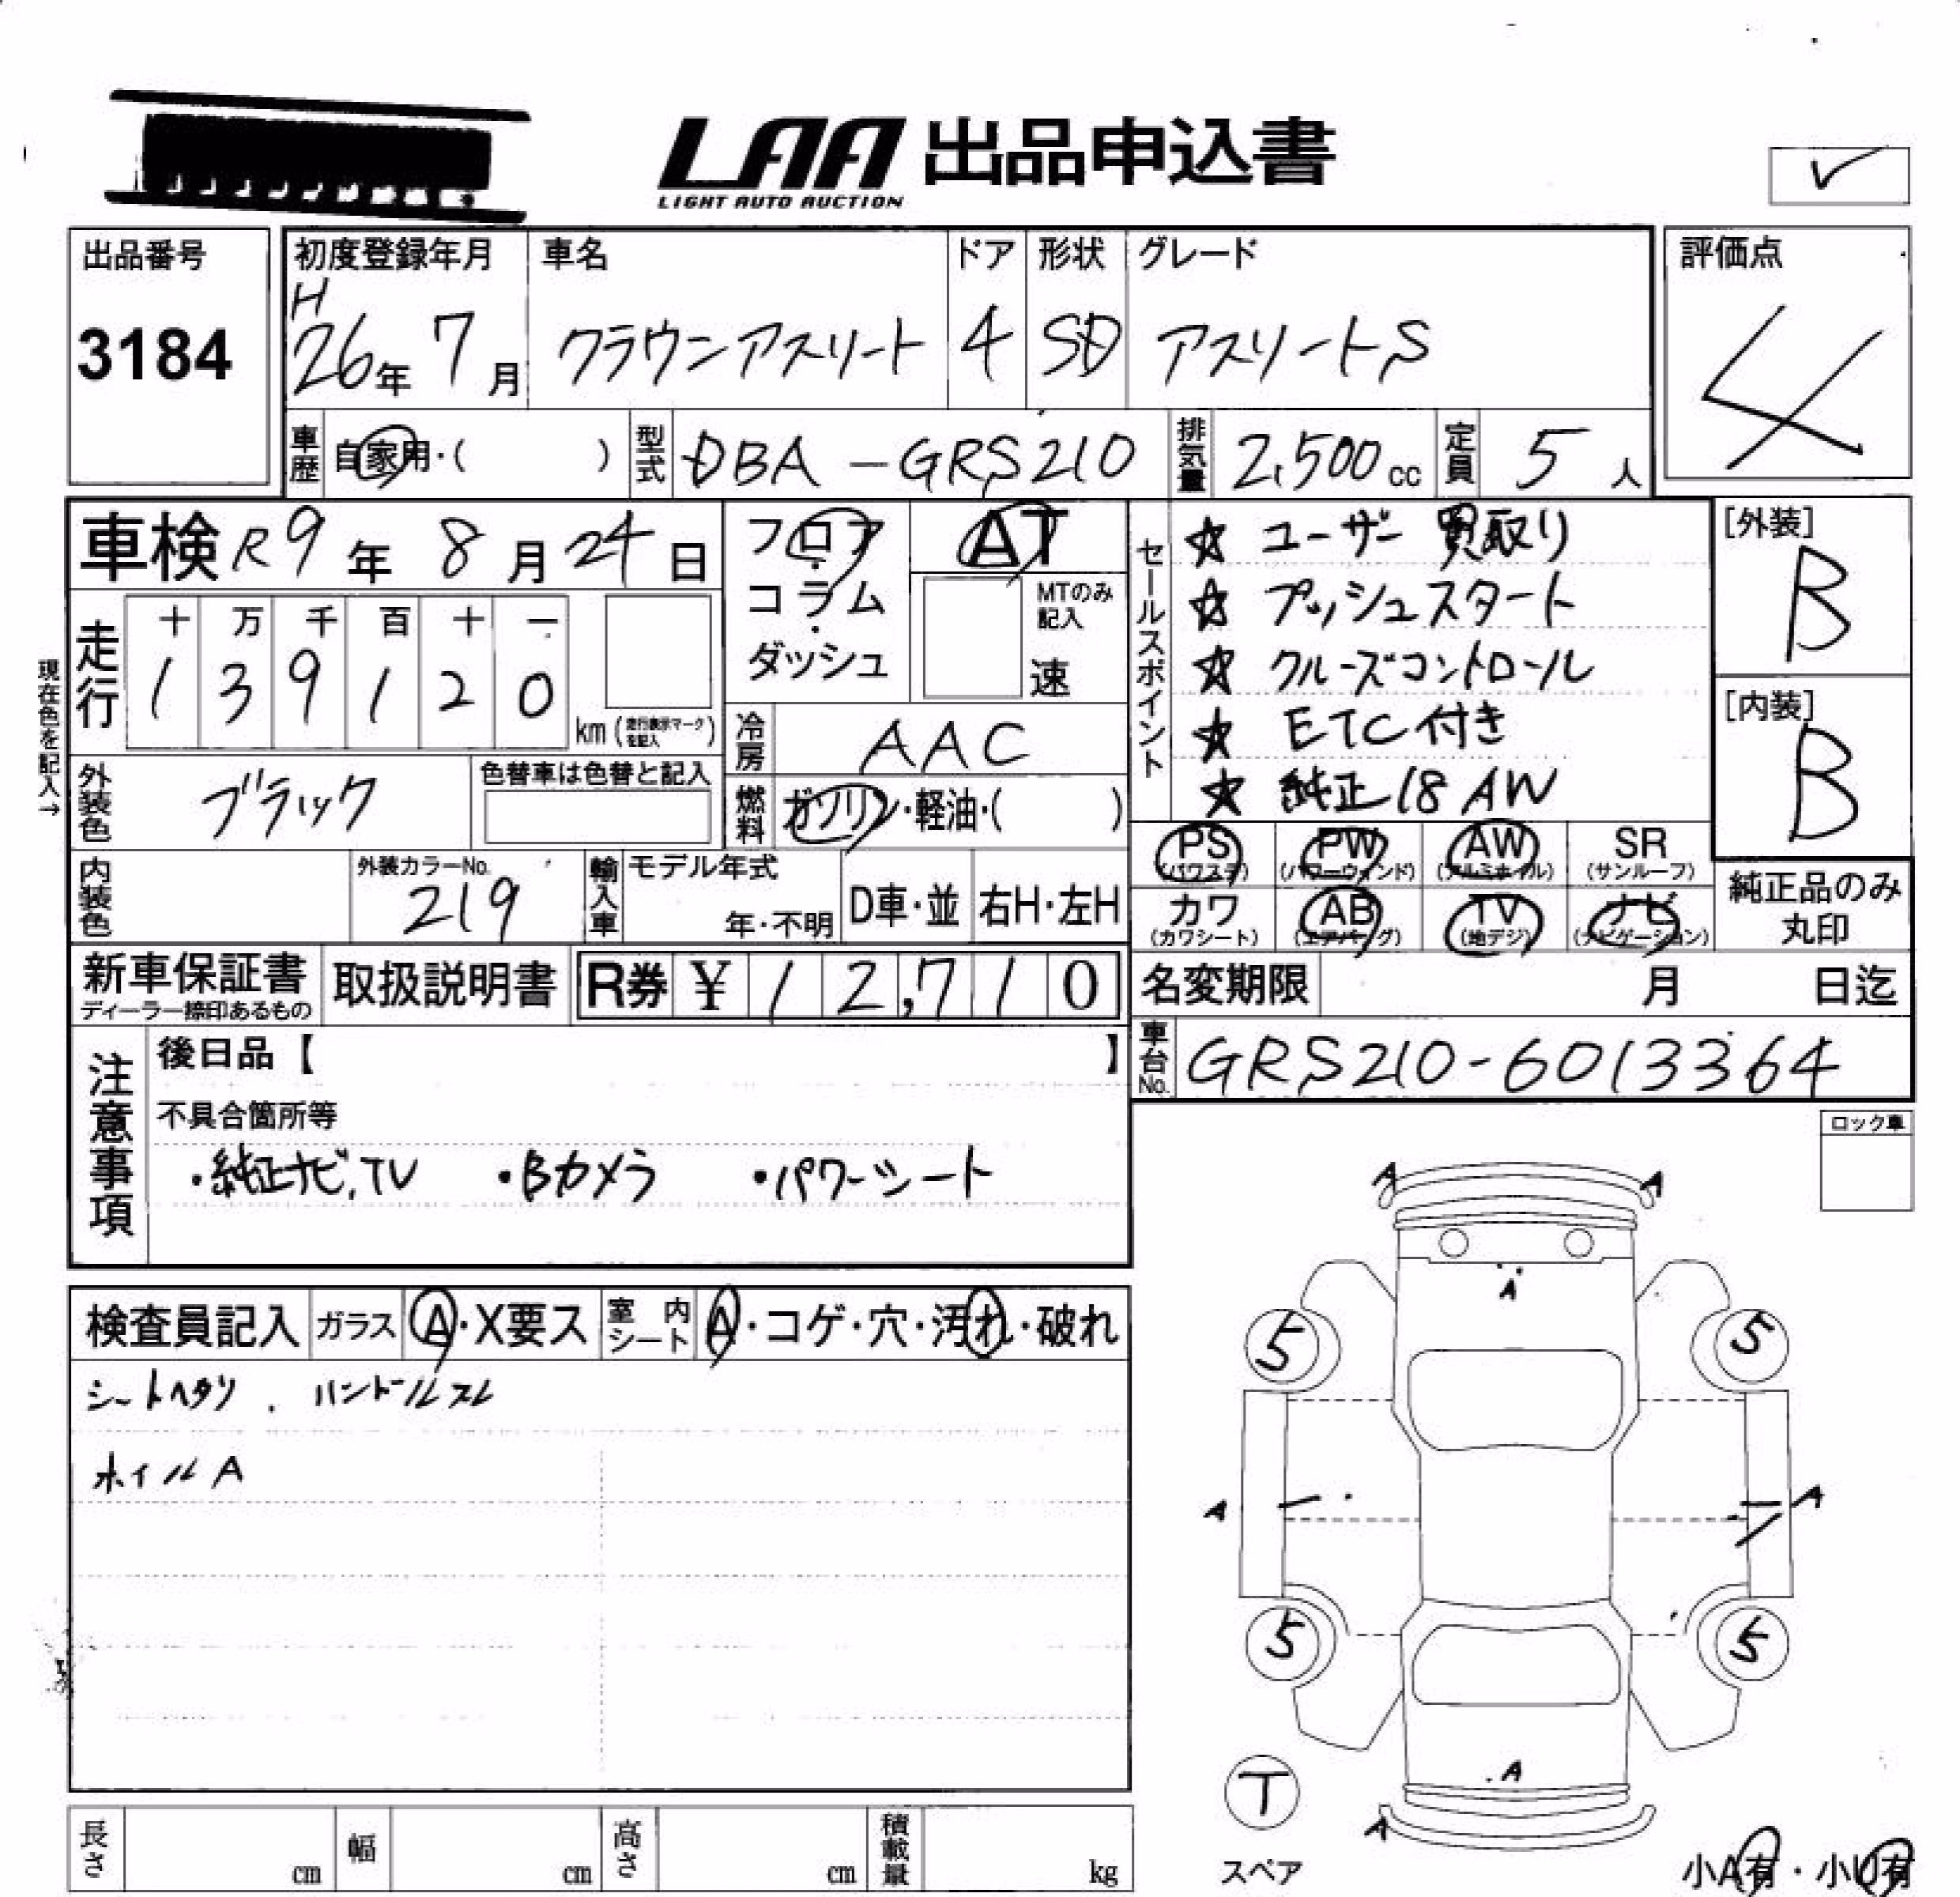 LAA 出品申込書
LIGHT AUTO AUCTION
✓
出品番号
3184
初度登録年月
H
26年 7月
車名
クラウンアスリート
ドア
4
形状
SD
グレード
アスリートS
評価点
4
車歴 自家用・( )
型式 DBA-GRS210
排気量 2,500cc
定員 5人
車検 R9年 8月 24日
フロア・コラム・ダッシュ
AT
MTのみ記入
速
現在色を記入→
走行
十 万 千 百 十 一
1 3 9 1 2 0
km(走行表示マークを記入)
冷房 AAC
外装色 ブラック
色替車は色替と記入
燃料 ガソリン・軽油・( )
内装色
外装カラーNo.
219
輸入車 モデル年式
年・不明
D車・並
右H・左H
セールスポイント
☆ ユーザー買取り
☆ プッシュスタート
☆ クルーズコントロール
☆ ETC付き
☆ 純正18AW
[外装]
B
[内装]
B
PS (パワステ)
PW (パワーウィンド)
AW (アルミホイル)
SR (サンルーフ)
カワ (カワシート)
AB (エアバッグ)
TV (地デジ)
ナビ (ナビゲーション)
純正品のみ
丸印
新車保証書
ディーラー捺印あるもの
取扱説明書
R券 ¥ 12,710
名変期限 月 日迄
車台No. GRS210-6013364
注意事項
後日品【 】
不具合箇所等
・純正ナビ,TV ・Bカメラ ・パワーシート
ロック車
検査員記入
ガラス A・X要ス
室内シート A・コゲ・穴・汚れ・破れ
シートヘタリ. ハンドルスレ
ホイルA
A A
A
5 5
A A
5 5
A
T
A
スペア
小A有・小U有
長さ cm
幅 cm
高さ cm
積載量 kg